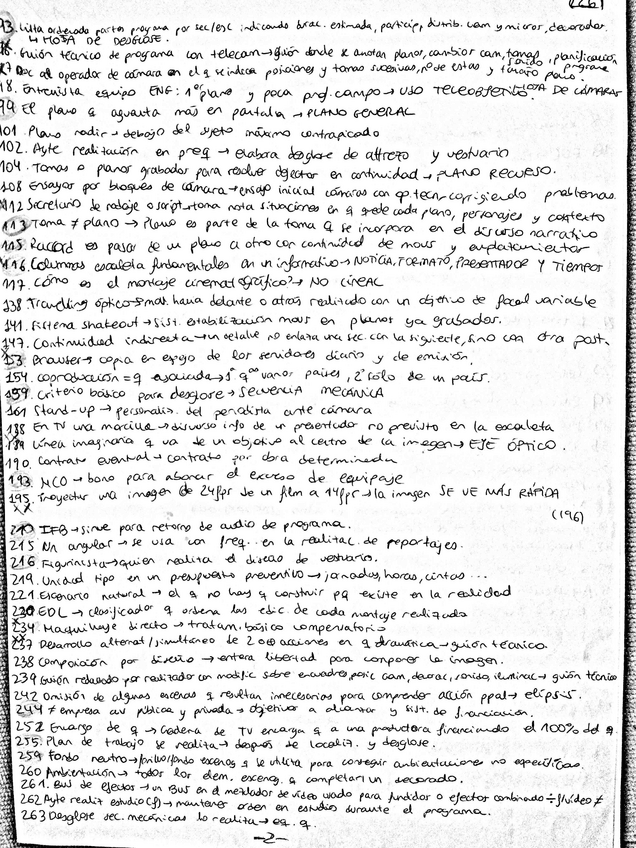 93. Lista ordenada partes programa por sec/esc indicando durac. estimada, particip, distrib. cam y micros, decorados.
↳ HOJA DE DESGLOSE.
Guión técnico de programa con telecam → guión donde se anotan planos, cambios cam, tomas sonido, planificación
97 Doc al operador de cámara en el q se indican posiciones y tomas sucesivas, nº de estas y tamaño plano. programa
HOJA DE CÁMARAS
98. Entrevista equipo ENG: 1º plano y poca prof. campo → USO TELEOBJETIVO.
99 El plano q aguanta más en pantalla → PLANO GENERAL
101. Plano nadir → debajo del sujeto máximo contrapicado
102. Ayte realización en preq → elabora desglose de attrezo y vestuario
104. Tomas o planos grabados para resolver defectos en continuidad → PLANO RECURSO.
108 Ensayos por bloques de cámara → ensayo inicial cámaras con op. tecn. corrigiendo problemas
112 Secretario de rodaje o script → toma nota situaciones en q quede cada plano, personajes y contexto
113 Toma ≠ plano → Plano es parte de la toma q se incorpora en el discurso narrativo
115. Raccord es pasar de un plano a otro con continuidad de movs y emplazamientos
116. Columnas escaleta fundamentales en un informativo → NOTICIA, FORMATO, PRESENTADOR Y TIEMPOS
117. Cómo es el montaje cinematográfico? → NO LINEAL
138. Travelling óptico → mov. hacia delante o atrás realizado con un objetivo de focal variable
141. Sistema shakeout → sist. estabilización movs en planos ya grabados.
147. Continuidad indirecta → un detalle no enlaza una sec. con la siguiente, sino con otra post.
153. Browser → copia en espejo de los servidores diario y de emisión.
154. Coproducción ≠ q asociada → 1ª q varios países, 2ª sólo de un país.
159. Criterio básico para desglose → SECUENCIA MECÁNICA
161 Stand-up → personaliz. del periodista ante cámara
188 En TV una morcilla → discurso info de un presentador no previsto en la escaleta
189 Línea imaginaria q va de un objetivo al centro de la imagen → EJE ÓPTICO.
190. Contrato eventual → contrato por obra determinada
193. MCO → bono para abonar el exceso de equipaje
195. Proyectar una imagen de 24fps de un film a 14fps → la imagen SE VE MÁS RÁPIDA
(196)
210 IFB → sirve para retorno de audio de programa.
215 Un angular → se usa con freq. en la realizac. de reportajes.
216 Figurinista → quien realiza el diseño de vestuario.
219. Unidad tipo en un presupuesto preventivo → jornadas, horas, cintas...
221 Escenario natural → el q no hay q construir pq existe en la realidad
230 EDL → clasificador q ordena las edic. de cada montaje realizado
234. Maquillaje directo → tratam. básico compensatorio
237 Desarrollo alternat/simultáneo de 2 o más acciones en q dramática → guión técnico.
238 Composición por diseño → entera libertad para componer la imagen.
239 Guión redactado por realizador con modific sobre encuadres, posic cam, decorac, sonido, iluminac → guión técnico
242 Omisión de algunas escenas q resultan innecesarias para comprender acción ppal → elipsis.
244 ≠ empresa av pública y privada → objetivos a alcanzar y sist. de financiación.
252 Encargo de q → Cadena de TV encarga q a una productora financiando el 100% del q.
255. Plan de trabajo se realiza → después de localiz. y desglose.
259 Fondo neutro → forillo/fondo escenog q se utiliza para conseguir ambientaciones no específicas.
260 Ambientación → todos los elem. escenog. q completan un decorado.
261. Bus de efectos → un BUS en el mezclador de vídeo usado para fundidos o efectos combinado ÷ f/vídeo ≠
262 Ayte realiz estudio (f) → mantener orden en estudio durante el programa.
263 Desglose sec. mecánicas lo realiza → eq. q.
-2-